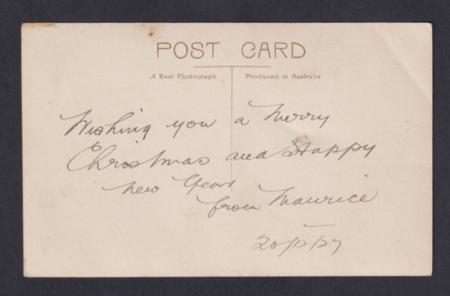 POST CARD
A Real Photograph
Produced in Australia
Wishing you a Merry
Christmas and Happy
New Year
from Maurice